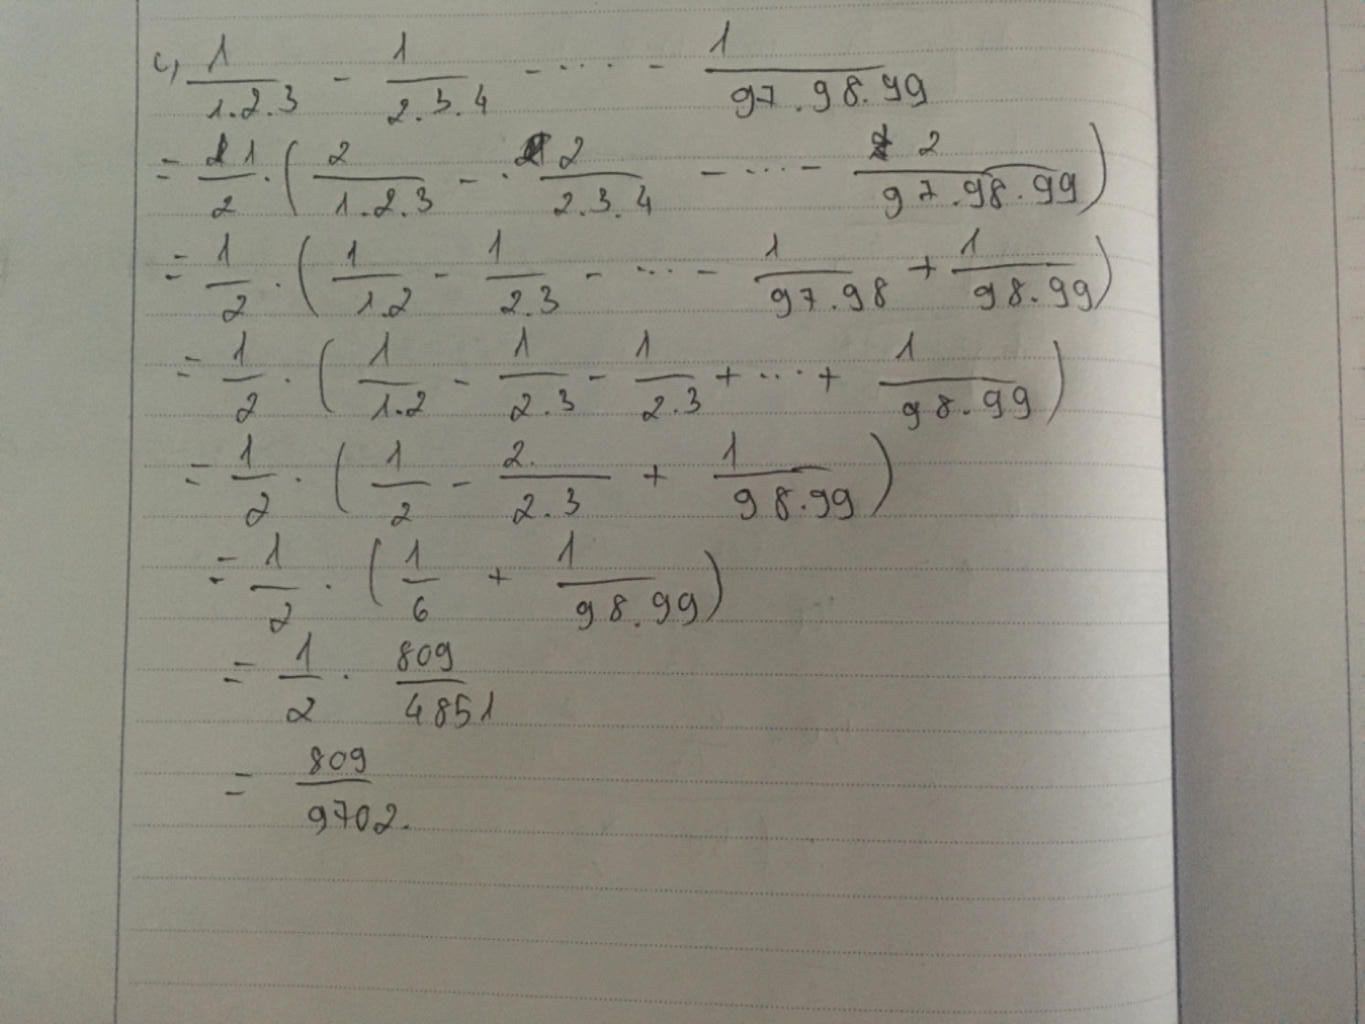 c, 1/1.2.3 - 1/2.3.4 - .... - 1/97.98.99
= 1/2 . ( 2/1.2.3 - 2/2.3.4 - ... - 2/97.98.99 )
= 1/2 . ( 1/1.2 - 1/2.3 - ... - 1/97.98 + 1/98.99 )
= 1/2 . ( 1/1.2 - 1/2.3 - 1/2.3 + ... + 1/98.99 )
= 1/2 . ( 1/2 - 2/2.3 + 1/98.99 )
= 1/2 . ( 1/6 + 1/98.99 )
= 1/2 . 809/4851
= 809/9702.